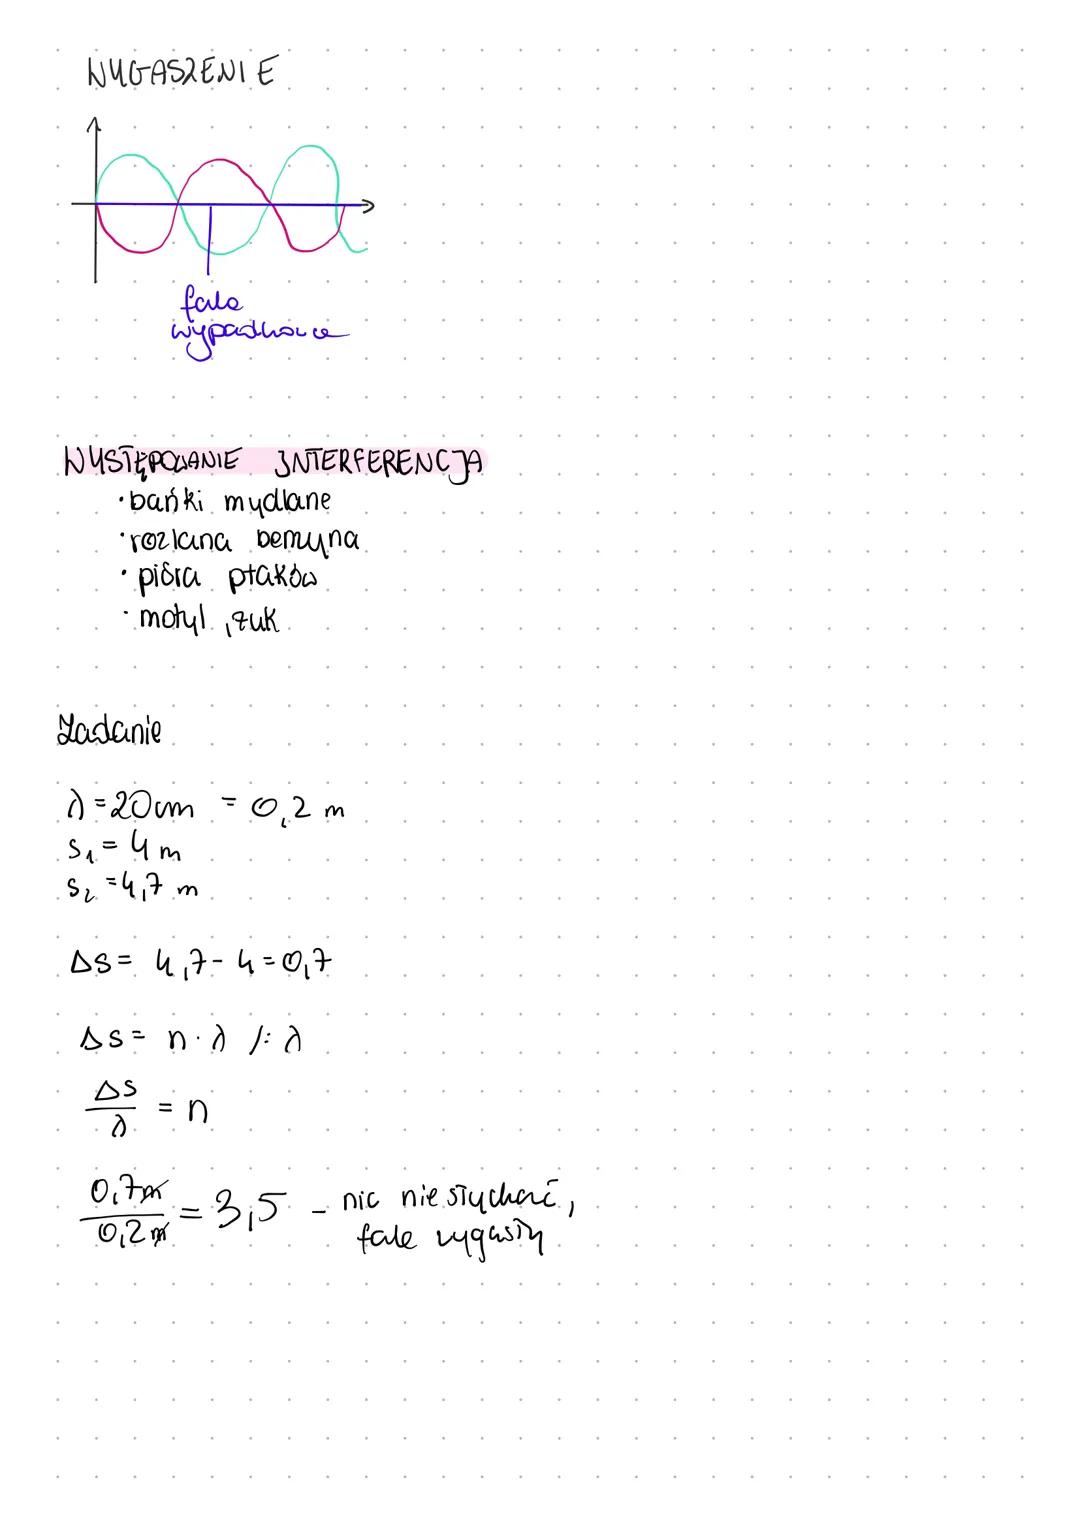 WYGASZENIE
fala
wypadkowa
WYSTĘPOWANIE INTERFERENCJA
• bańki mydlane
• rozlana benzyna
• pióra ptaków
• motyl, żuk
Zadanie
λ = 20cm = 0,2 m
s₁ = 4 m
s₂ = 4,7 m
Δs = 4,7 - 4 = 0,7
Δs = n · λ /: λ
Δs/λ = n
0,7m/0,2m = 3,5 - nic nie słychać,
fale wygasły